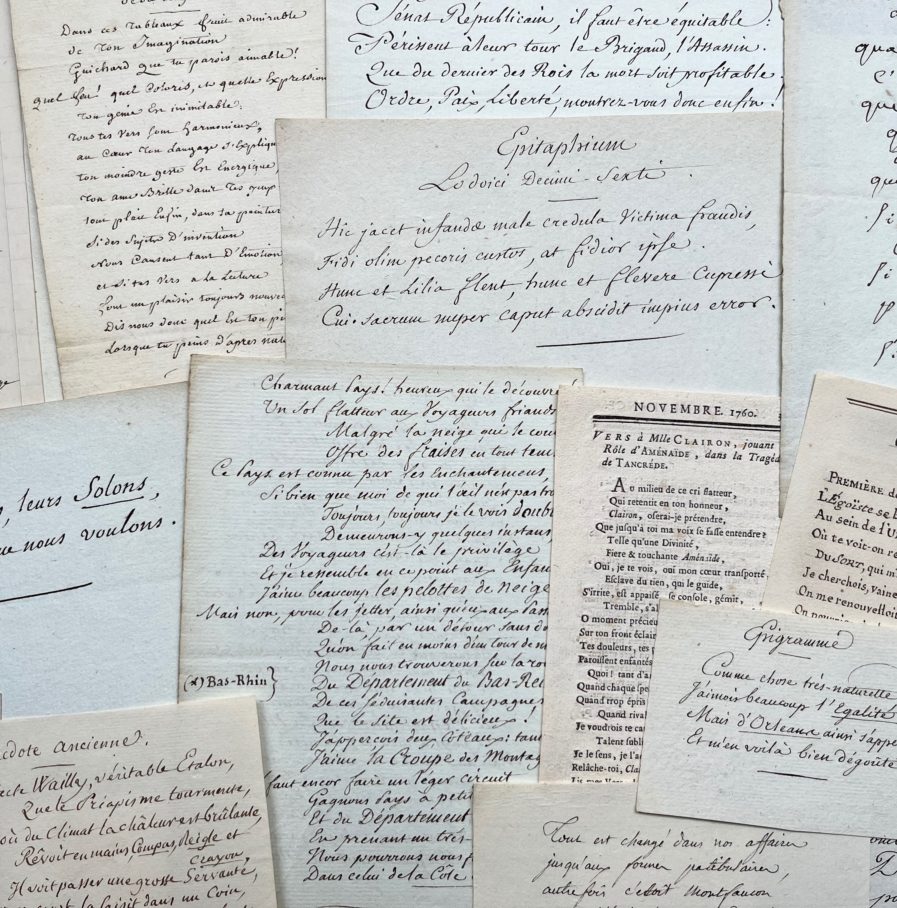 Dans ces Tableaux fruit admirable
de ton Imagination
Guichard que tu parois aimable!
quel feu! quel Coloris, et quelle Expression
ton génie En inimitable.
tous tes vers sont harmonieux,
au Cœur ton langage s'Expliqu
ton moindre geste En Energique,
ton ame Brille dans tes yeux
tout plait Enfin, dans ta peintur
si des Sujets D'invention
Nous Causent tant D'Emotion
et si tes vers a la Lecture
sont un plaisir toujours nouve
Dis nous donc quel En ton pi
Lorsque tu peins d'apres natu
Sénat Républicain, il faut être équitable:
Périssent à leur tour le Brigand, l'Assassin.
Que du dernier des Rois la mort soit profitable.
Ordre, Paix, Liberté, montrez-vous donc enfin!
Epitaphium
Lodoici Decimi-Sexti.
Hic jacet infandæ male credula Victima fraudis,
Fidi olim pecoris custos, at fidior ipse.
Hunc et Lilia flent, hunc et flevere Cupressi
Cui sacrum nuper caput abscidit impius error.
, leurs Solons,
ue nous voulons.
Charmant Pays! heureux qui le découvre
Un Sol flatteur aux Voyageurs friands
Malgré la neige qui le cou
Offre des fraises en tout tem
Ce Pays est connu par les Enchantemens,
Si bien que moi de qui l'œil n'en pas tro
Toujours, toujours je le vois doubl
Demeurons-y quelques instans
Des Voyageurs c'est-là le privilège
Et je ressemble en ce point aux Enfan
J'aime beaucoup les pelottes de neige
Mais non, pour les jetter ainsi qu'eux aux
De-là, par un détour sans do
Qu'on fait en moins d'un tour de m
Nous nous trouverons sur la ro
(x) Bas-Rhin} Du Département du Bas-Re
De ces séduisantes Campagnes
Que le site est délicieux!
J'apperçois deux côteaux: tan
J'aime la Croupe des Montag
faut encor faire un léger circuit
Gagnons Pays a petit
Et du Département
En prenant un très-
Nous pourrons nous f
Dans celui de la Côte
NOVEMBRE. 1760.
VERS à Mlle CLAIRON, jouant
Rôle d'AMÉNAÏDE, dans la Tragéd
de TANCRÉDE.
Au milieu de ce cri flatteur,
Qui retentit en ton honneur,
Clairon, oserai-je prétendre,
Que jusqu'à toi ma voix se fasse entendre?
Telle qu'une Divinité,
Fiere & touchante Aménaïde,
Oui, je te vois, oui mon cœur transporté,
Esclave du tien, qui le guide,
S'irrite, est appaisé, se console, gémit,
Tremble, s'al
O moment précieu
Sur ton front éclair
Tes douleurs, tes p
Paroissent enfantés
Quoi! tant d'a
Quand chaque spe
Quand trop épris
Quand rival
Je voudrois te ca
Talent subli
Je le sens, je l'ac
Relâche-toi, Clai
PREMIÈRE de
L'Egoïste se l
Au sein de l'U
Où te voit-on re
Du SORT, qui m'
Je cherchois, vaine
On me renouvelloi
Epigramme
Comme chose très-naturelle
J'aimois beaucoup l'Egalité
Mais d'Orleans ainsi s'appe
Et m'en voilà bien dégoûté
cdote ancienne.
ecte Wailly, véritable Etalon,
Que le Priapisme tourmente,
où du Climat la châleur est brûlante,
Rêvoit en mains, Compas, Regle et
crayon,
Il voit passer une grosse Servante,
la saisit dans un Coin,
Tout est changé dans nos affaires
jusqu'aux formes patibulaires,
autre fois c'etoit Montfaucon